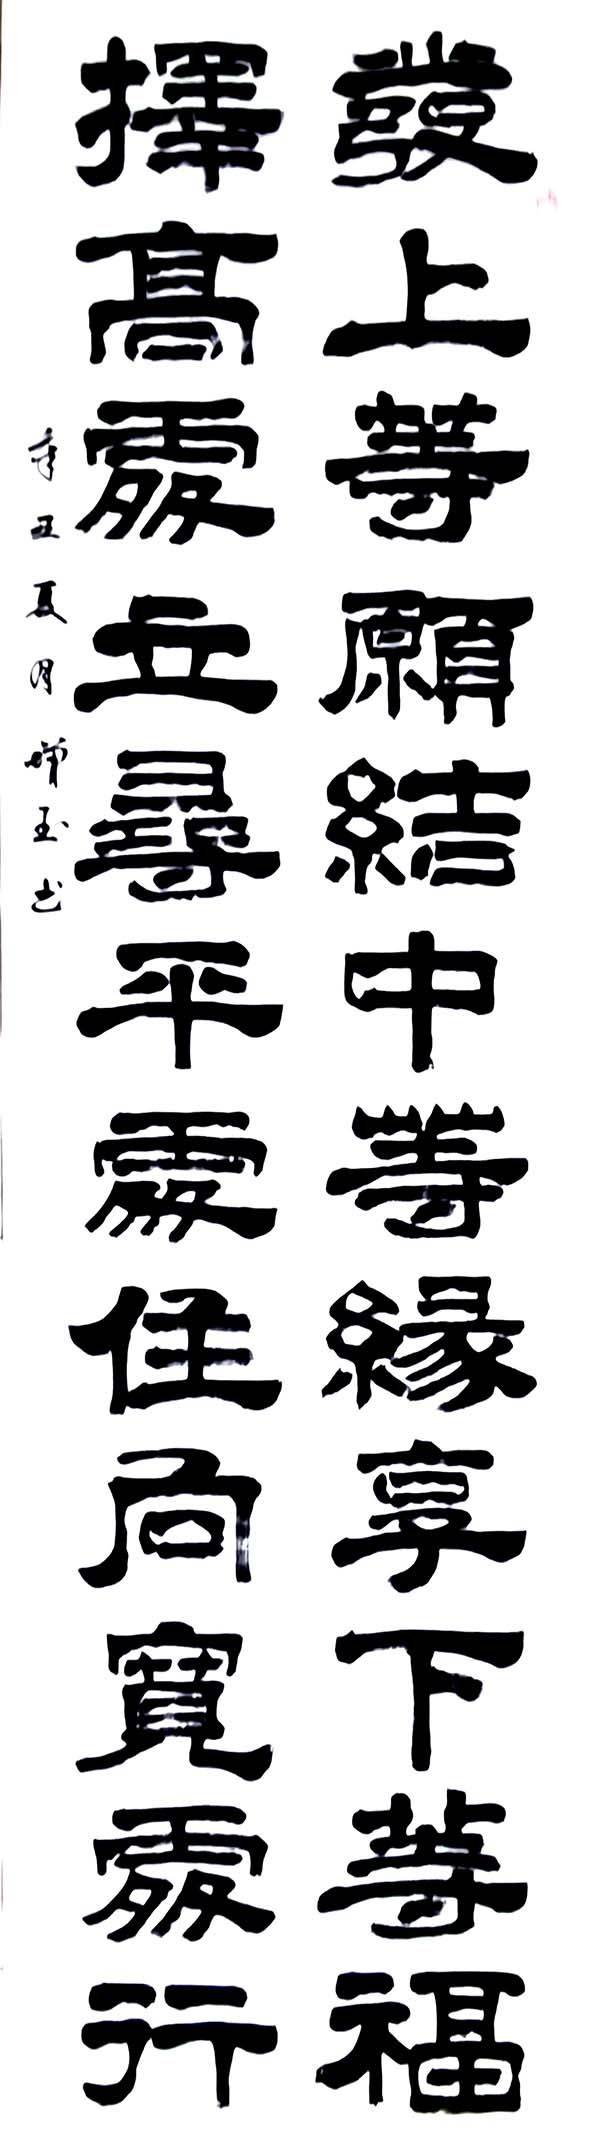 發上等願結中等緣享下等福
擇高處立尋平處住向寬處行
辛丑夏月增玉书